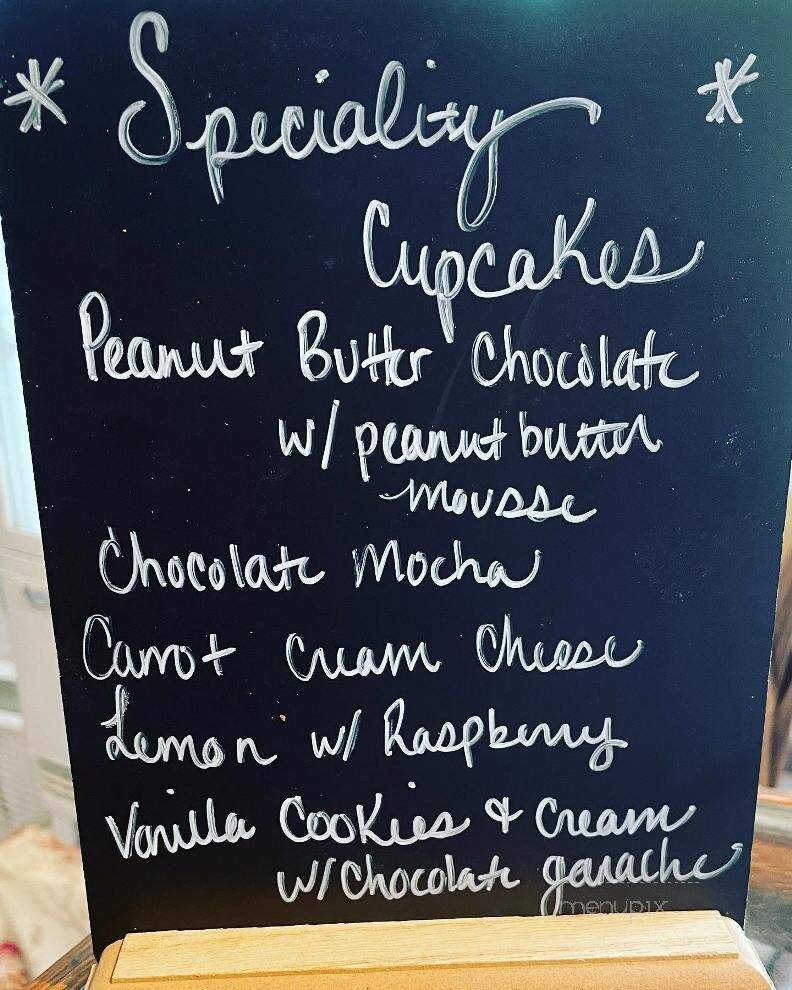 * Speciality *
Cupcakes
Peanut Butter Chocolate
w/ peanut butter
mousse
Chocolate Mocha
Carrot Cream Cheese
Lemon w/ Raspberry
Vanilla Cookies & Cream
w/ Chocolate ganache
menupix